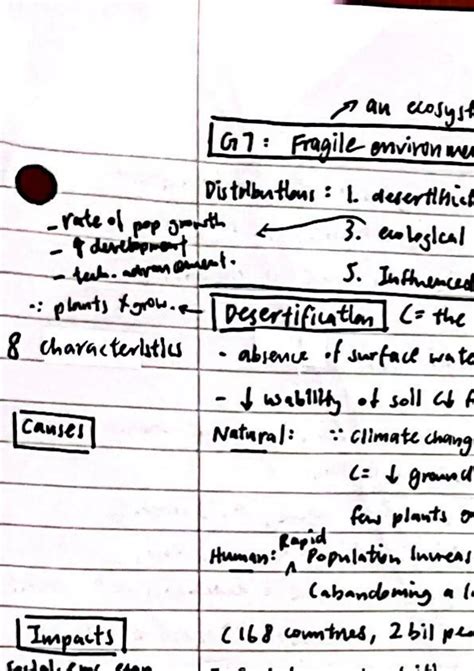 → an ecosyst
G7: Fragile environme
Distributions: 1. desertific
- rate of pop growth
← 3. ecological
- ↑ development
- tech. advancement.
5. Influenced
∴ plants x grow. ←
Desertification (= the
8 characteristics
- absence of surface wate
- ↓ wability of soil
Causes
Natural: ∵ climate chang
(= ↓ ground
few plants
Human: Rapid Population Increas
(abandoning a l
Impacts
(168 countries, 2 bil peo